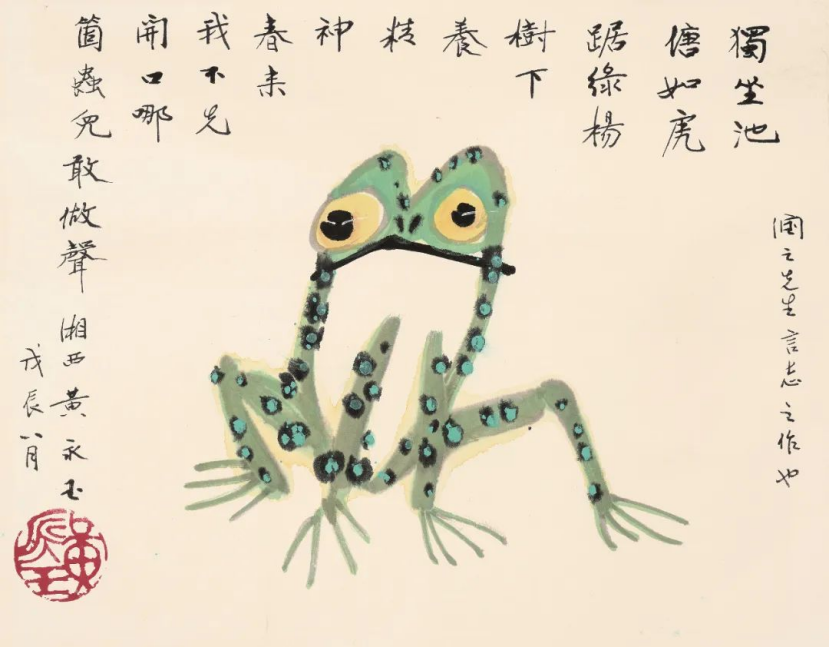 獨坐池
塘如虎
踞綠楊
樹下
養
精
神
春来
我不先
開口哪
箇蟲兒敢做聲 湘西黃永玉
戊辰八月
潤之先生言志之作也
黃永玉